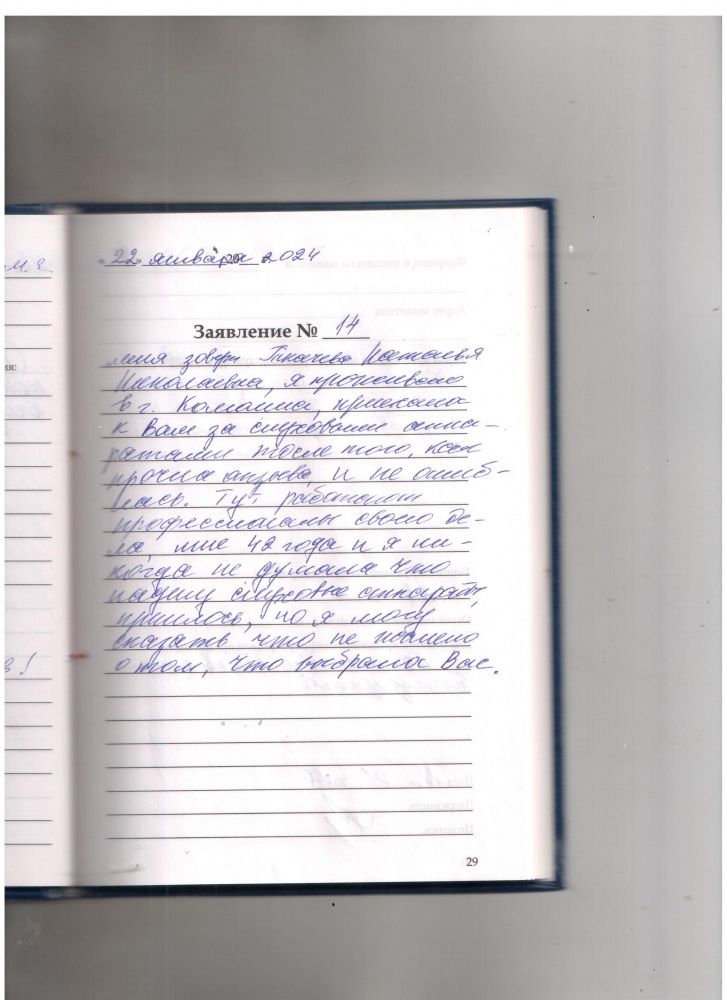 "22" января 2024
Заявление № 14
меня зовут Ткачева Наталья
Николаевна, я проживаю
в г. Коломна, приехала
к Вам за слуховыми аппа-
ратами после того, как
прочла отзывы и не ошиб-
лась. Тут работают
профессионалы своего де-
ла, мне 42 года и я ни-
когда не думала что
надену слуховые аппараты,
пришлось, но я могу
сказать что не жалею
о том, что выбрала Вас.
29